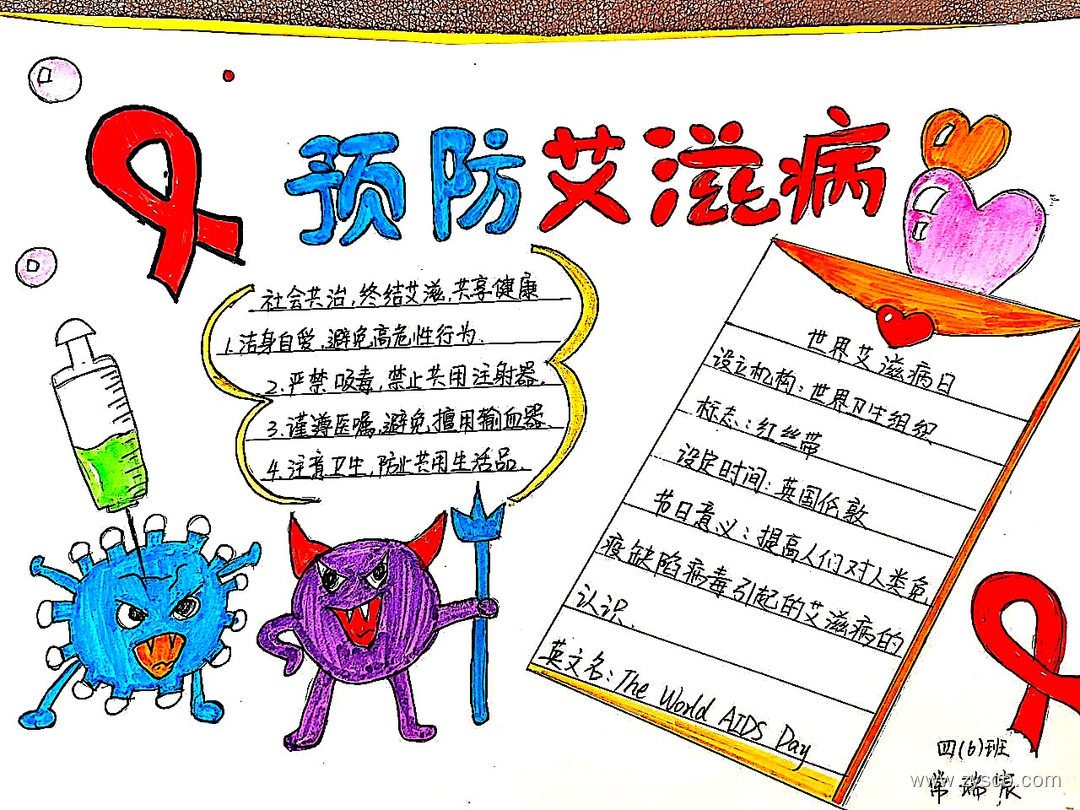 预防艾滋病
社会共治,终结艾滋,共享健康
1.洁身自爱,避免高危性行为.
2.严禁吸毒,禁止共用注射器.
3.谨遵医嘱,避免擅用输血器.
4.注意卫生,防止共用生活品.
世界艾滋病日
设立机构:世界卫生组织
标志:红丝带
设定时间:英国伦敦
节日意义:提高人们对人类免
疫缺陷病毒引起的艾滋病的
认识.
英文名:The World AIDS Day
四(6)班
常瑞